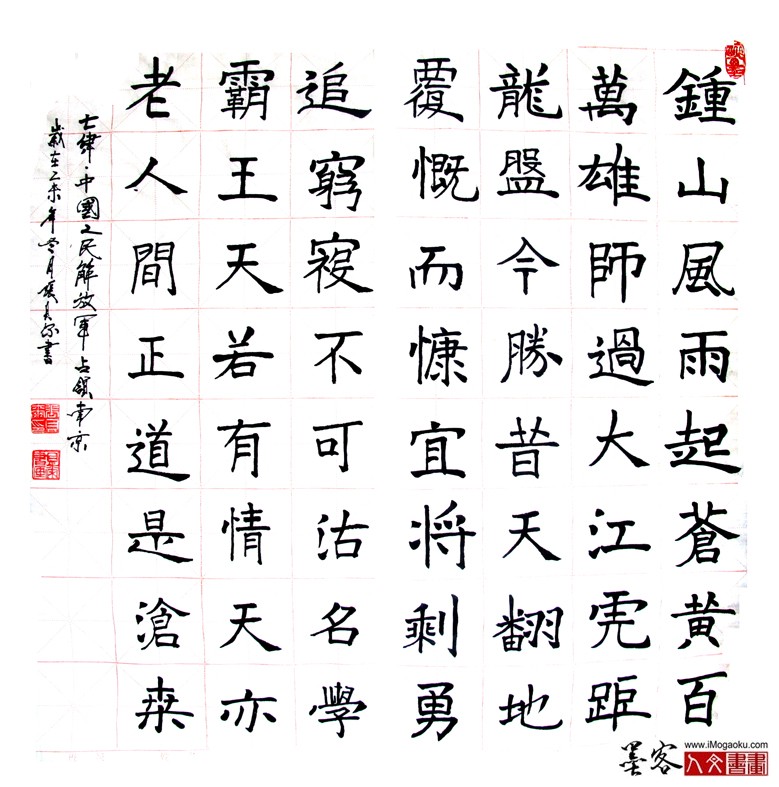 鍾山風雨起蒼黃百
萬雄師過大江虎距
龍盤今勝昔天翻地
覆慨而慷宜将剩勇
追窮寇不可沽名學
霸王天若有情天亦
老人間正道是滄桑
七律·中國人民解放軍占領南京
歲在乙未年月書
墨客
www.iMogaoku.com
人文書畫